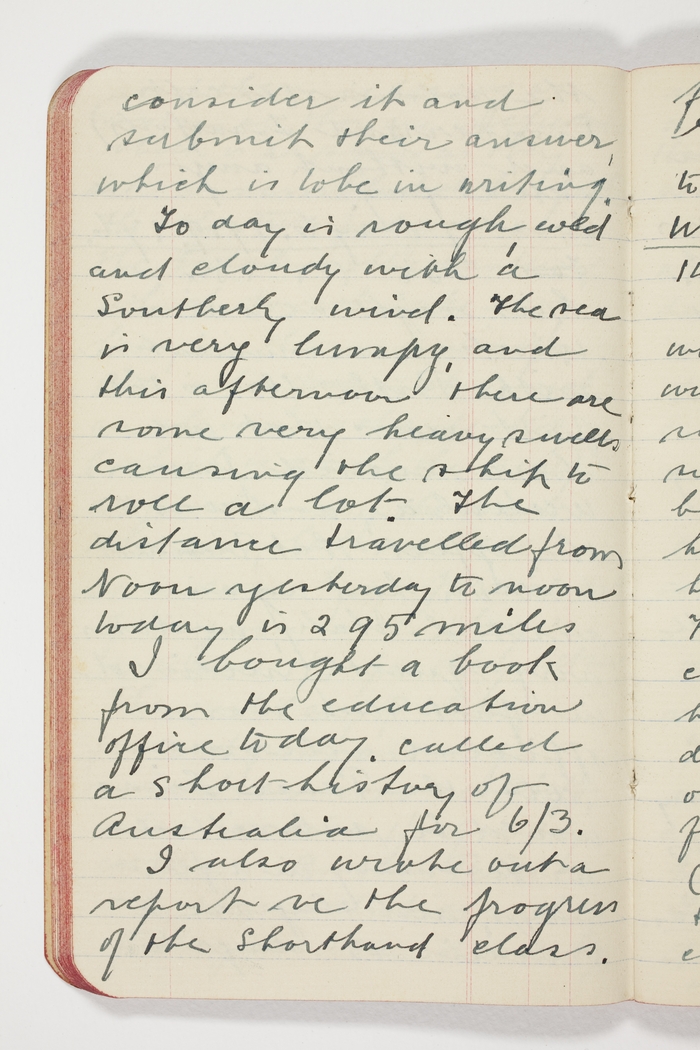 consider it and
submit their answer,
which is to be in writing.
To day is rough, cold
and cloudy with a
Southerly wind. The sea
is very lumpy, and
this afternoon there are
some very heavy swells
causing the ship to
roll a lot. The
distance travelled from
Noon yesterday to noon
today is 295 miles
I bought a book
from the education
office today, called
a short history of
Australia for 6/3.
I also wrote out a
report re the progress
of the Shorthand class.